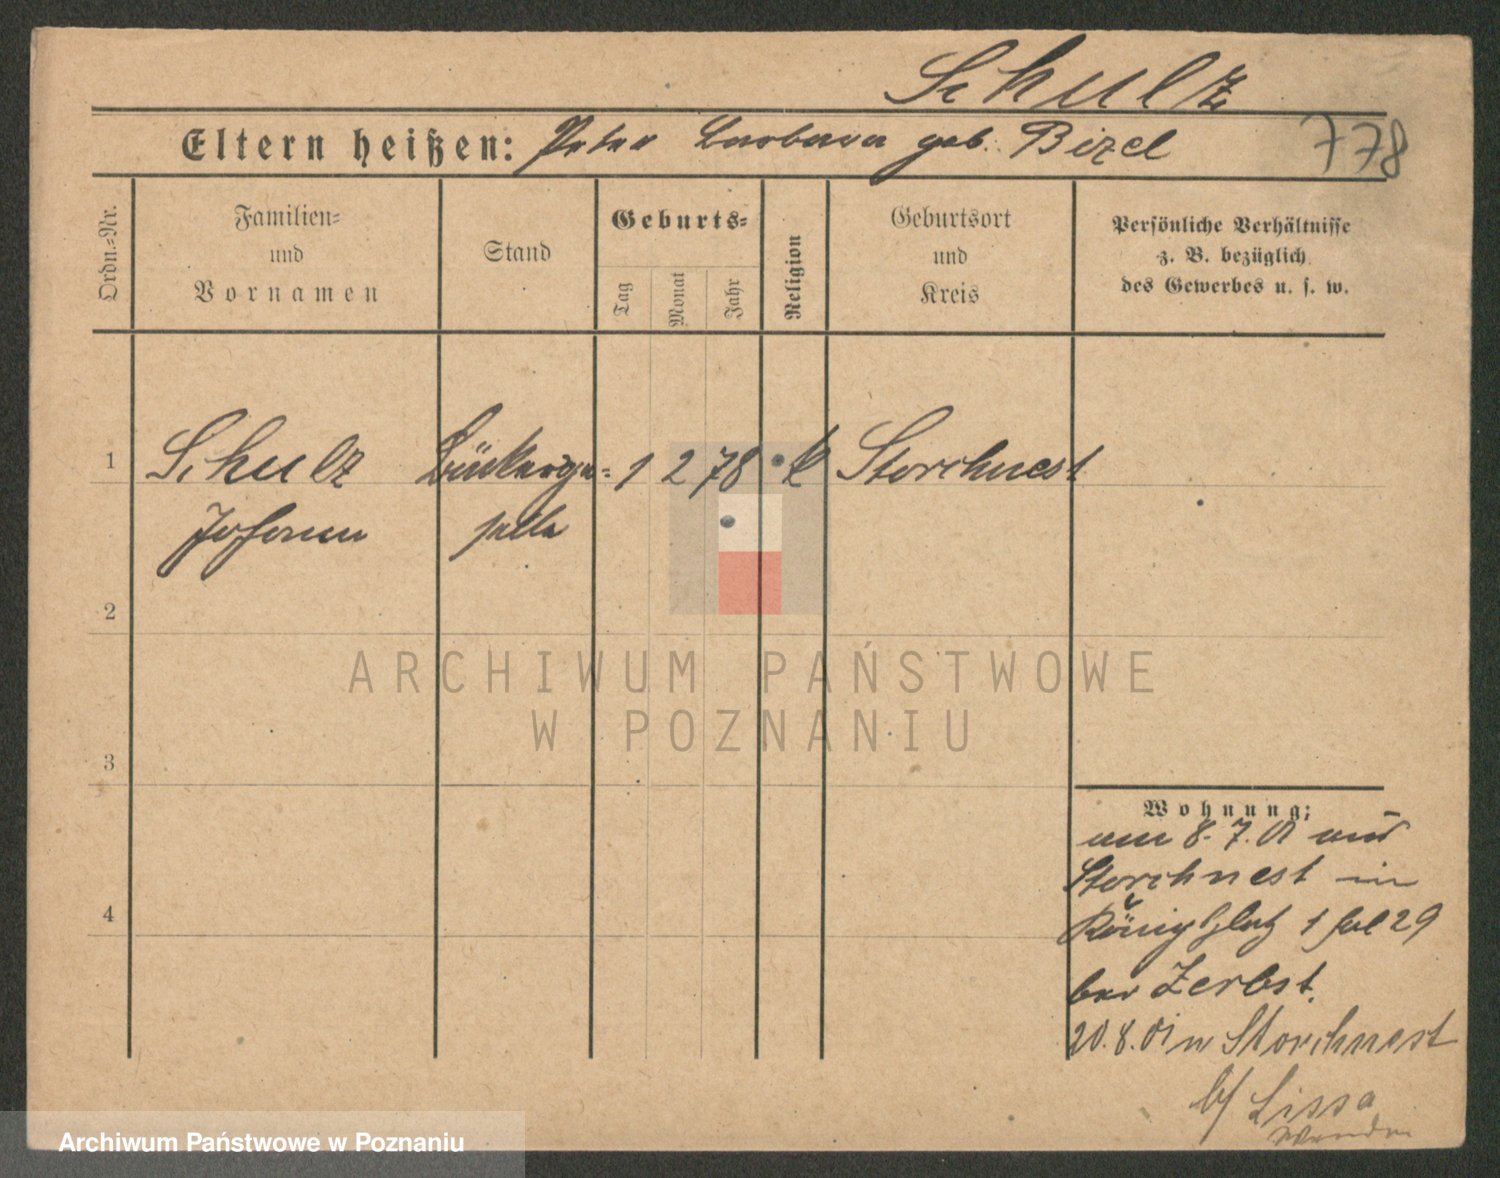 Schulz
Eltern heißen: Peter Barbara geb. Bizel
778
Ordn.=Nr.
Familien=
und
Vornamen
Stand
Geburts=
Tag
Monat
Jahr
Religion
Geburtsort
und
Kreis
Persönliche Verhältnisse
z. B. bezüglich
des Gewerbes u. s. w.
1
Schulz Bäckerge= 1 2 78 k Storchnest
Johann selle
2
3
4
Wohnung:
am 8. 7. 01 aus
Storchnest in
Königsplatz 1 bei
ber Zerbst.
20. 8. 01 n Storchnest
b/ Lissa
ARCHIWUM PAŃSTWOWE
W POZNANIU
Archiwum Państwowe w Poznaniu